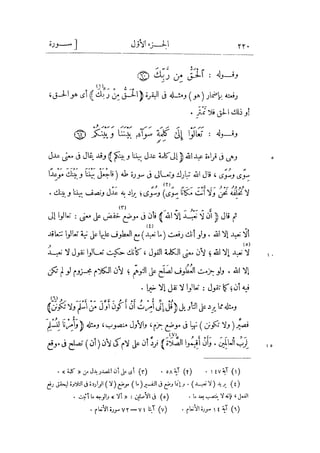 ٢٢٠ الجـــزء الأوّل [ ســـورة
وقـــوله : الْحَقُّ مِن رَّبِّكَ
رفعته بإضمار (هو) ومثـله فى البقرة (الْحَقُّ مِنْ رَبِّكَ) أى هو الحـق،
أو ذلك الحق فلا تمتــرِ .
وقـــوله : تَعَالَوْا إِلَىٰ كَلِمَةٍ سَوَآءِۭ بَيْنَنَا وَبَيْنَكُمْ
٥ وهى فى قراءة عبد الله (إلى كلمة عدل بيننا وبينكم) وقد يقال فى معنى عدل
سِوًى وسُوًى ، قال الله تبارك وتعــالى فى سورة طه (فاجعل بيننا وبينك مَوْعِدًا
لا نُخْلِفُهُ نَحْنُ وَلَا أَنْتَ مَكَانًا سِوًى) وسُوًى ؛ يراد به عدل ونصف بيننا وبينك .
ثم قال (أن لا نَعْبُــدَ إِلّا الله) فأن فى موضع خفض على معنى : تعالوا إلى
ألّا نعبد إلا الله . ولو أنك رفعت (ما نعبد) مع العطوف عليها على نية تعالوا نتعاقد
١٠ لا نعبد إلا الله ؛ لأن معنى الكلمة القول ، كأنك حكيت تعــالوا نقول لا نعبــد
إلا الله . ولو جزمت العُطوف لصلح على التوهّم ؛ لأن الكلام مجــزوم لو لم تكن
فيه أن ؛ كما تقول : تعالوا لا نقل إلا خيرا .
ومثله مما يرد على التأويل (قُلْ إنِّى أُمِرْتُ أنْ أَكُونَ أَوَّلَ مَنْ أسْلَمَ ولا تَكُونَنَّ)
فصيّر (ولا تكونن) نهيا فى موضع جزم ، والأول منصوب ، ومثله (وَأُمِرْنَا لِنُسْلِمَ
١٥ لِرَبِّ الْعالَمِينَ . وَأَنْ أَقِيمُوا الصَّلَاةَ) فردّ أن على لام كى لأن (أن) تصلح فى موقع
(١) آية ١٤٧ . (٢) آية ٥٨ . (٣) أى على أن المصدر بدل من « كلمة » .
(٤) يريد به (لا نعبــد) . وإنما وضع فى التفسير (ما) موضع (لا) الواردة فى التلاوة ليحقق رفع
الفعل ، فإنه لا ينتصب بعد ما . (٥) فى الأصلين : « ألا » والوجه ما أثبت .
(٦) آية ١٤ سورة الأنعام . (٧) آيتا ٧١ — ٧٢ سورة الأنعام .